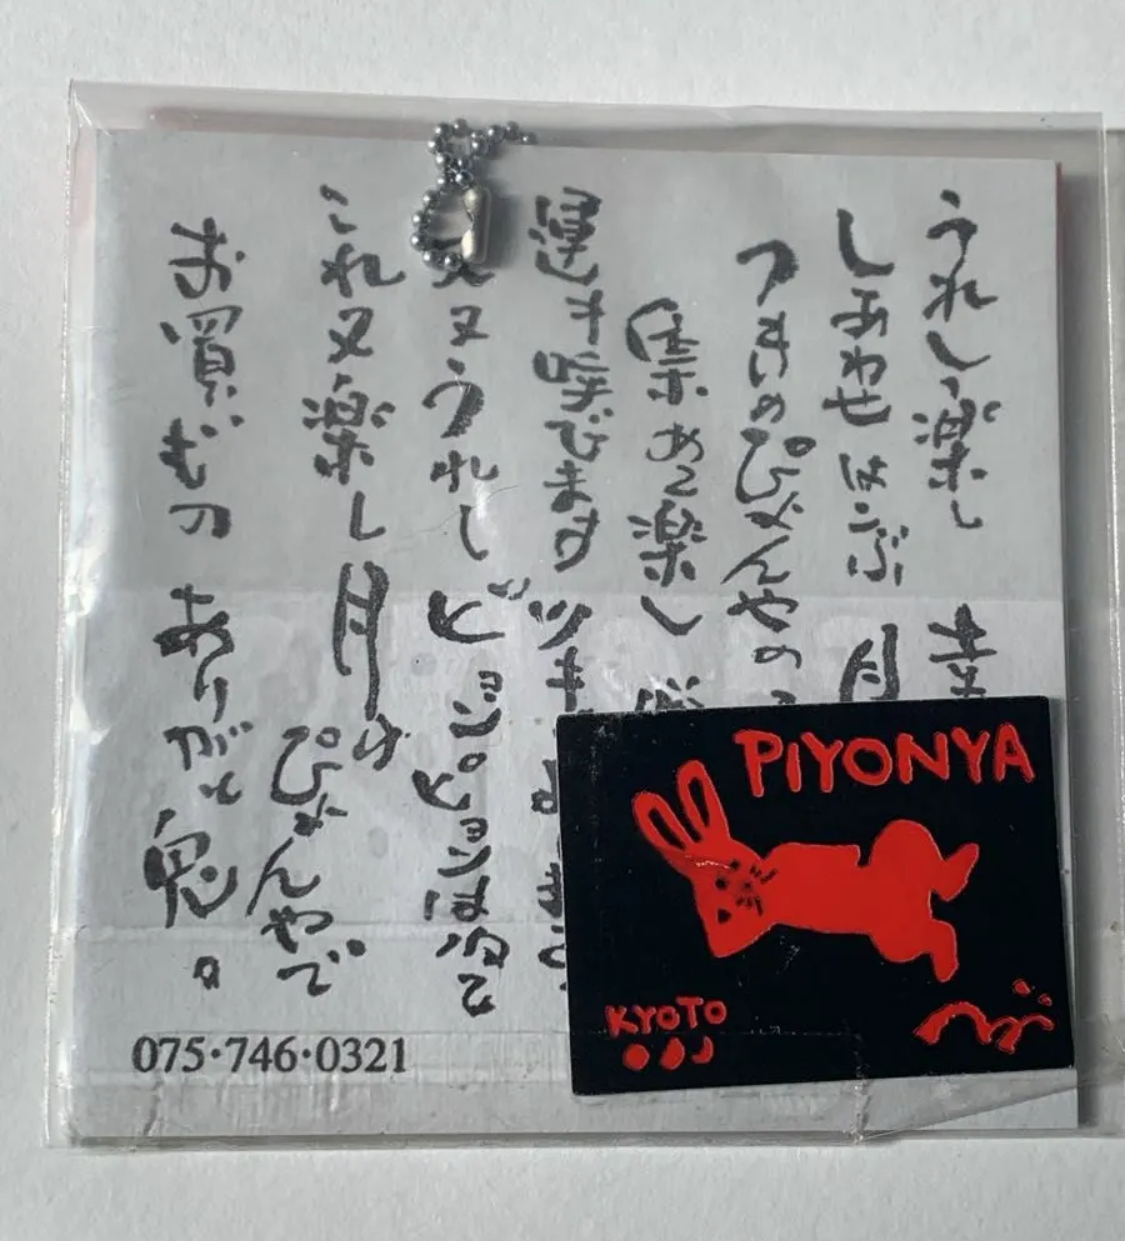 うれし楽し 幸
しあわせはこぶ 月
ぴょんやの
集めて楽し
運も呼びます ツキも
又うれし ピョンピョンは
これ又楽し 月の
ぴょんやで
お買もの ありがと兎。
075・746・0321
PIYONYA
KYOTO